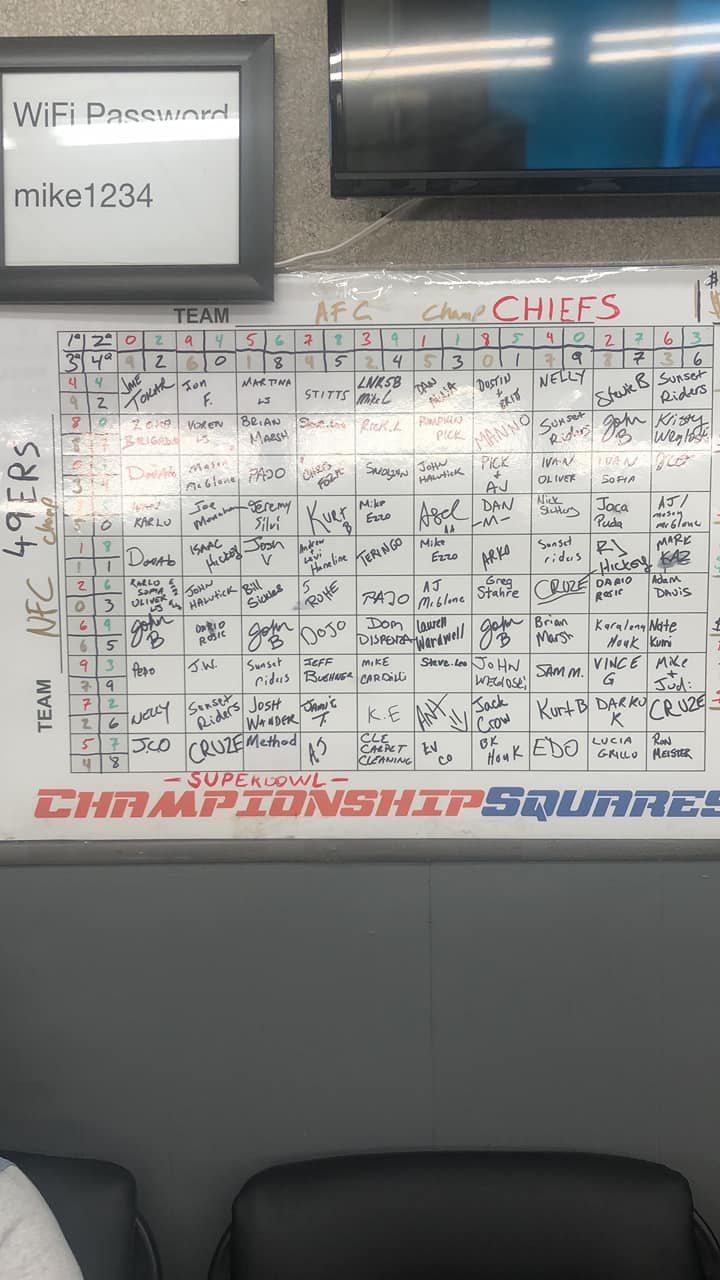 WiFi Password
mike1234
TEAM AFC Champ CHIEFS
1ª 2ª 0 2 9 4 5 6 7 8 3 9 1 1 8 5 4 0 2 7 6 3
3ª 4ª 9 2 6 0 1 8 4 5 2 4 5 3 0 1 7 9 8 7 3 6
TEAM NFC Champ 49ERS
4 4 JAKE Jon MARTINA STITTS LNRSB DAN DUSTIN NELLY Steve B Sunset
9 2 TOKAR F. WS Mike L ANNA + BRIT Riders
8 ZONA VOREN BRIAN Steve.Leo Rick.L PUMPKIN MANNO Sunset John Krissy
BRIGADA WS MARSH PICK Riders B
Mason PAJO CHRIS JOHN PICK IVAN IVAN JCO
McGlone Halwick + AJ OLIVER SOFIA
Joe Jeremy Kurt Mike DAN Nick Jaca AJ/
0 KARLO Silvi B Ezzo -M- Puda mason McGlone
1 8 ISAAC Josh Andrew Mike ARKO Sunset RJ MARK
1 1 Hickey V + Levi Hameline TERINGO Ezzo riders Hickey KAZ
2 6 KARLO JOHN Bill RUHE PAJO AJ Greg CRUZE DARIO Adam
0 3 SOFIA OLIVER Halwick Sickles McGlone Stahre ROSIC DAVIS
6 9 John DARIO John DOJO DOM Lauren John Brian Karalynn Nate
6 5 B ROSIC B DISPENZA Wardwell B Marsh Houk Kumi
9 3 PERO J.W. Sunset JEFF MIKE Steve.Leo JOHN SAM M. VINCE Mike
7 9 riders BUEHNER CARDILLI G + Judi
7 2 NELLY Sunset JOSH Jamie K.E ANT Jack Kurt B DARKO CRUZE
2 6 Riders WANDER T Crow K
5 7 JCO CRUZE Method AS CLE EV BK EDO LUCIA RON
4 8 CARPET CLEANING CO Houk GRILLO MEISTER
- SUPERBOWL -
CHAMPIONSHIP SQUARES